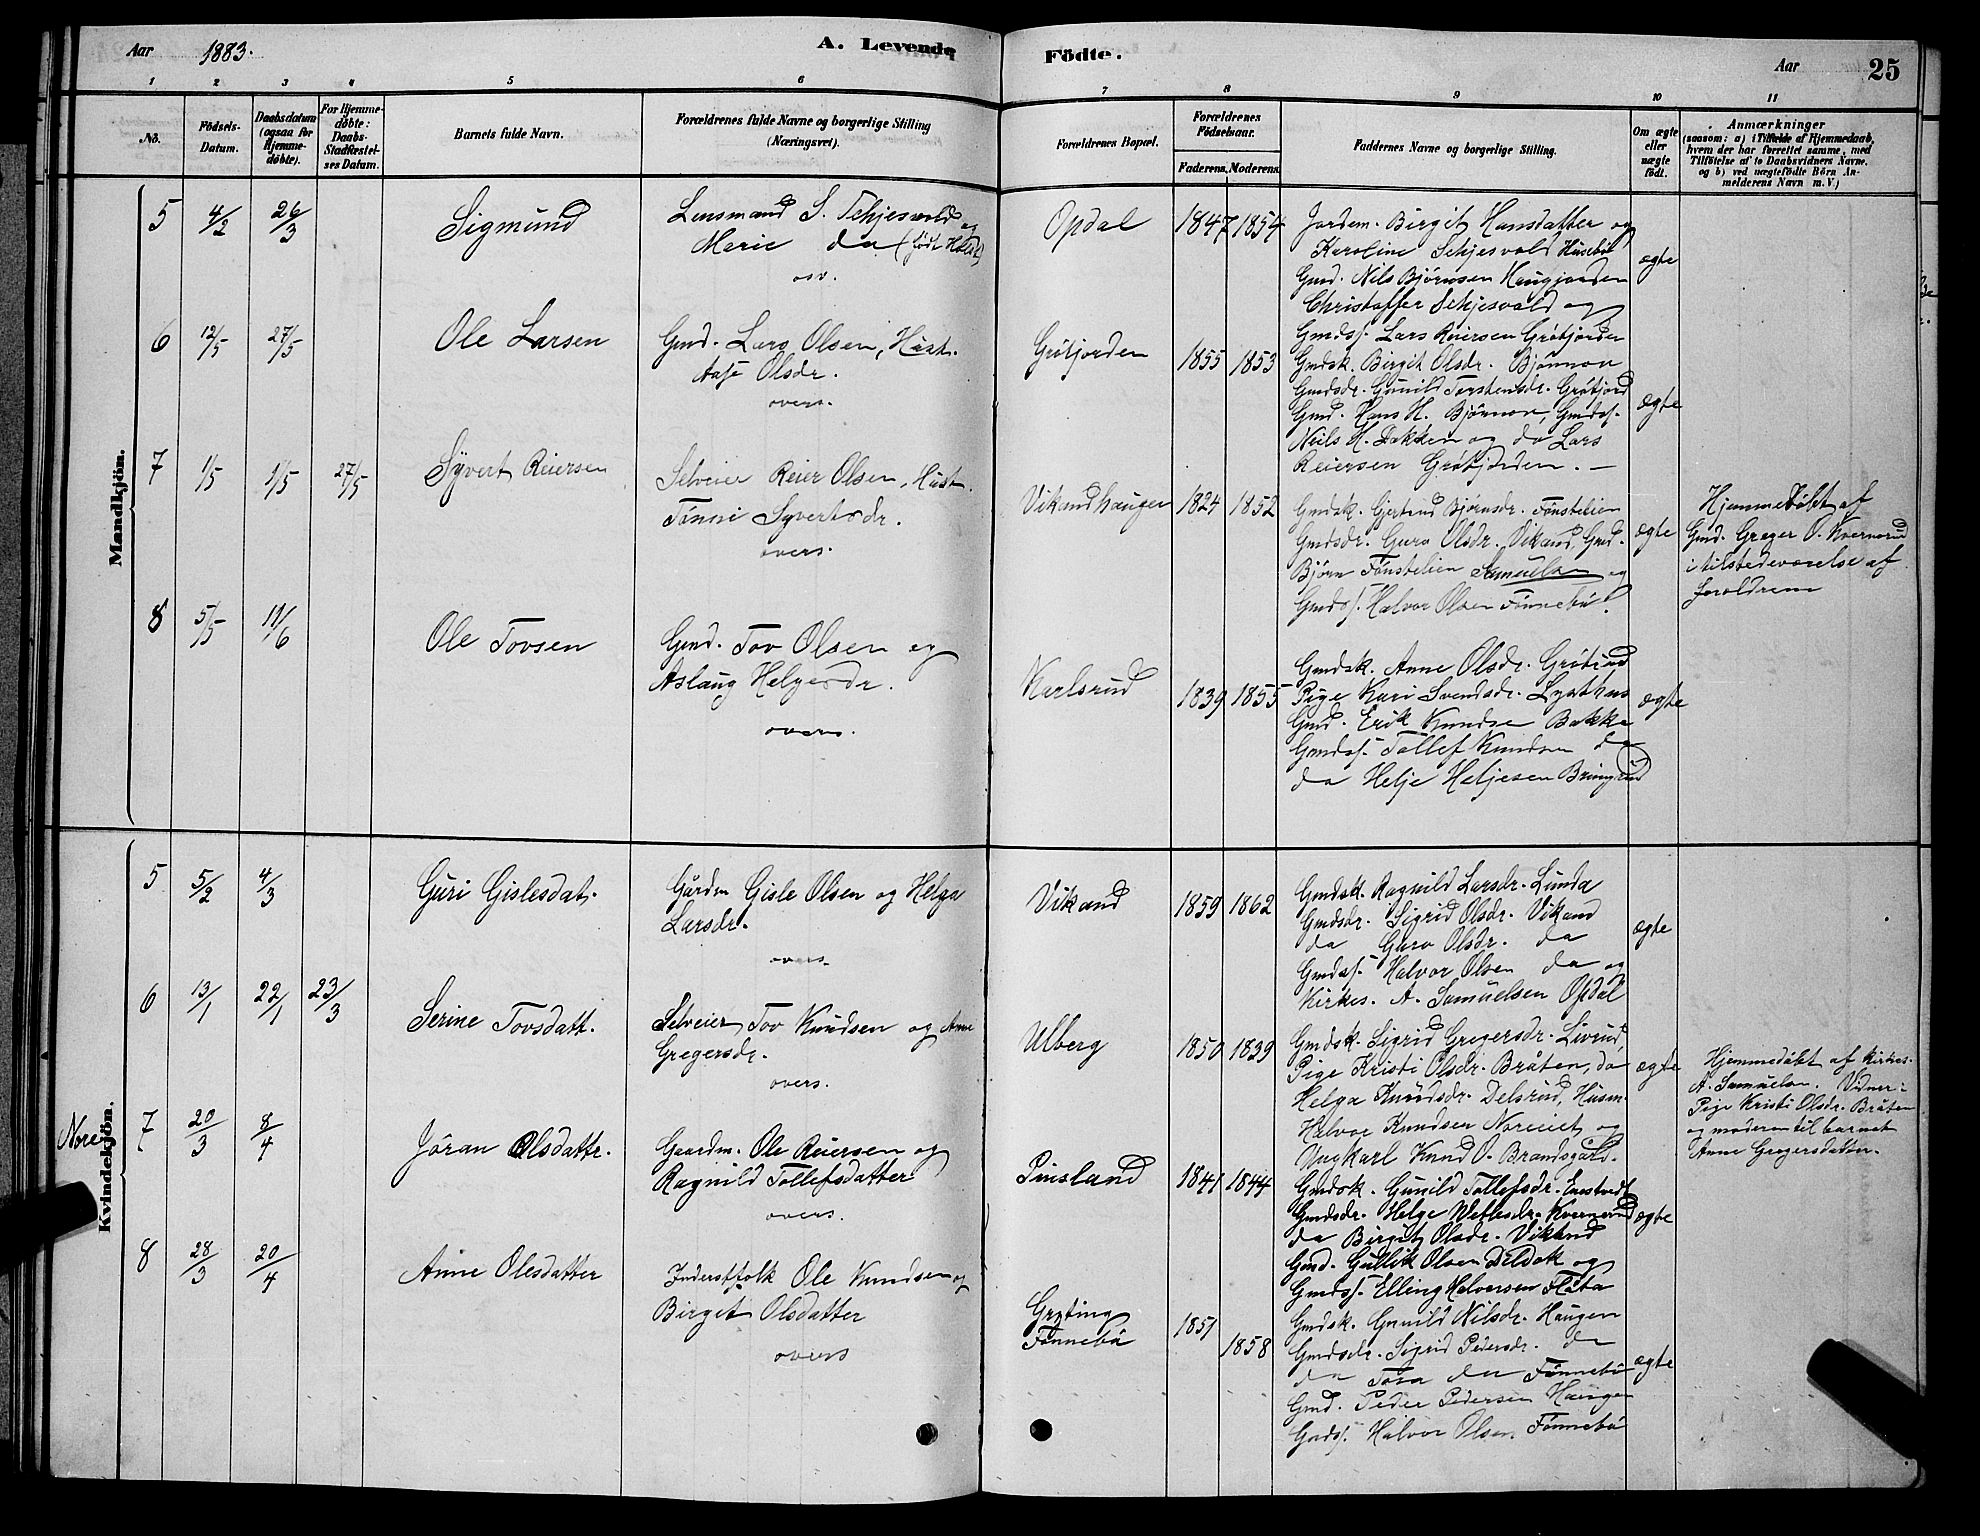 Aar 1883.
A. Levende Födte.
Aar 25
1 2 3 4 5 6 7 8 9 10 11
No.
Födsels-Datum.
Daabsdatum (ogsaa for Hjemme-döbte).
For Hjemme-döbte: Daabs-Stadfæstel-ses Datum.
Barnets fulde Navn.
Forældrenes fulde Navne og borgerlige Stilling
(Næringsvei).
Forældrenes Bopæl.
Forældrenes Födselsaar.
Faderens. Moderens.
Faddernes Navne og borgerlige Stilling.
Om ægte eller uægte födt.
Anmærkninger
(saasom: a) i Tilfælde af Hjemmedaab,
hvem der har forrettet samme, med
Tilföielse af to Daabsvidners Navne.
og b) ved uægtefödte Börn An-
melderens Navn m. V.)
Mandkjön.
5 4/2 26/3
Sigmund
Lensmand S. Tehjesvold og
Marie da (født Holst)
osv.
Opdal
1847 1854
Jordem. Birgit Hansdatter og
Karoline Sehjesvold Husebø
Gmd. Nils Bjørnsen Haugjorden
Christoffer Sehjesvold og
ægte
6 12/5 27/5
Ole Larsen
Gmd. Lars Olsen, Hust.
Aase Olsdr.
overs.
Grøtjorden
1855 1853
Gmds. Lars Reiersen Grøtjorden
Gmdsk. Birgit Olsdr. Bjønnon
Gmdsdr. Gunild Torstensdr. Grøtjord
Gmd. Hans H. Bjønnon, Gmds.
Neils H. Bakken og da Lars
Reiersen Grøtjorden. —
ægte
7 1/5 1/5 27/5
Syvert Reiersen
Selveier Reier Olsen, Hust.
Tønni Syvertsdr.
overs.
Vikandhaugen
1824 1852
Gmdsk. Gjertrud Bjørnsdr. Fønstelien
Gmdsdr. Guro Olsdr. Vikand, Gmd.
Bjørn Fønstelien Samuelsen og
Gmds. Halvor Olsen Fønnebø.
ægte
Hjemmedøbt af
Gmd. Greger O. Kvernrud
i tilstedeværelse af
foreldrene
8 5/5 11/6
Ole Tovsen
Gmd. Tov Olsen og
Aslaug Helgesdr.
overs.
Karlsrud
1839 1855
Gmdsk. Anne Olsdr. Grøtjord
Pige Kari Svendsdr. Lysthus
Gmd. Erik Knudsen Bakke
Gmds. Tollef Knudsen da
da Helje Heljesen Bringsrud
ægte
Kvindekjön.
Nore
5 5/2 4/3
Guri Gislesdat.
Gårdm Gisle Olsen og Helga
Larsdr.
overs.
Vikand
1859 1862
Gmdsk. Ragnild Larsdr. Lunda
Gmdsdr. Sigrid Olsdr. Vikand
da Guro Olsdr. da
Gmds. Halvor Olsen da og
Kirkes. A. Samuelsen Opdal
ægte
6 13/1 22/1 23/3
Serine Tovsdatt.
Selveier Tov Knudsen og Anne
Gregersdr.
overs.
Ulberg
1850 1839
Gmdsk. Sigrid Gregersdr. Livrud,
Pige Kristi Olsdr. Bråten, da
Helga Knudsdr. Delsrud, Husm.
Halvor Knudsen Noreiet og
Ungkarl Knud O. Brandsgård.
ægte
Hjemmedøbt af Kirkes.
A. Samuelsen. Vidner:
Pige Kristi Olsdr. Bråten
og moderen til barnet
Anne Gregersdatter.
7 20/3 8/4
Jöran Olsdattr.
Gaardm. Ole Reiersen og
Ragnild Tollefsdatter
overs.
Pinsland
1841 1844
Gmdsk. Gunild Tollefsdr. Enestvedt
Gmdsdr. Helge Wetlesdr. Kvernrud
da Birgit Olsdr. Vikand
Gmd. Gullik Olsen Dildok og
Gmds. Elling Halvorsen Flåta
ægte
8 28/3 20/4
Anne Olesdatter
Inderstfolk Ole Knudsen og
Birget Olsdatter
overs
Gryting
Fønnebø
1851 1858
Gmdsk. Gunild Nilsdr. Haugen
Gmdsdr. Sigrid Pedersdr. da
da Tora da Fønnebø
Gmd. Peder Pedersen Haugen
Gmds. Halvor Olsen Fønnebø
ægte